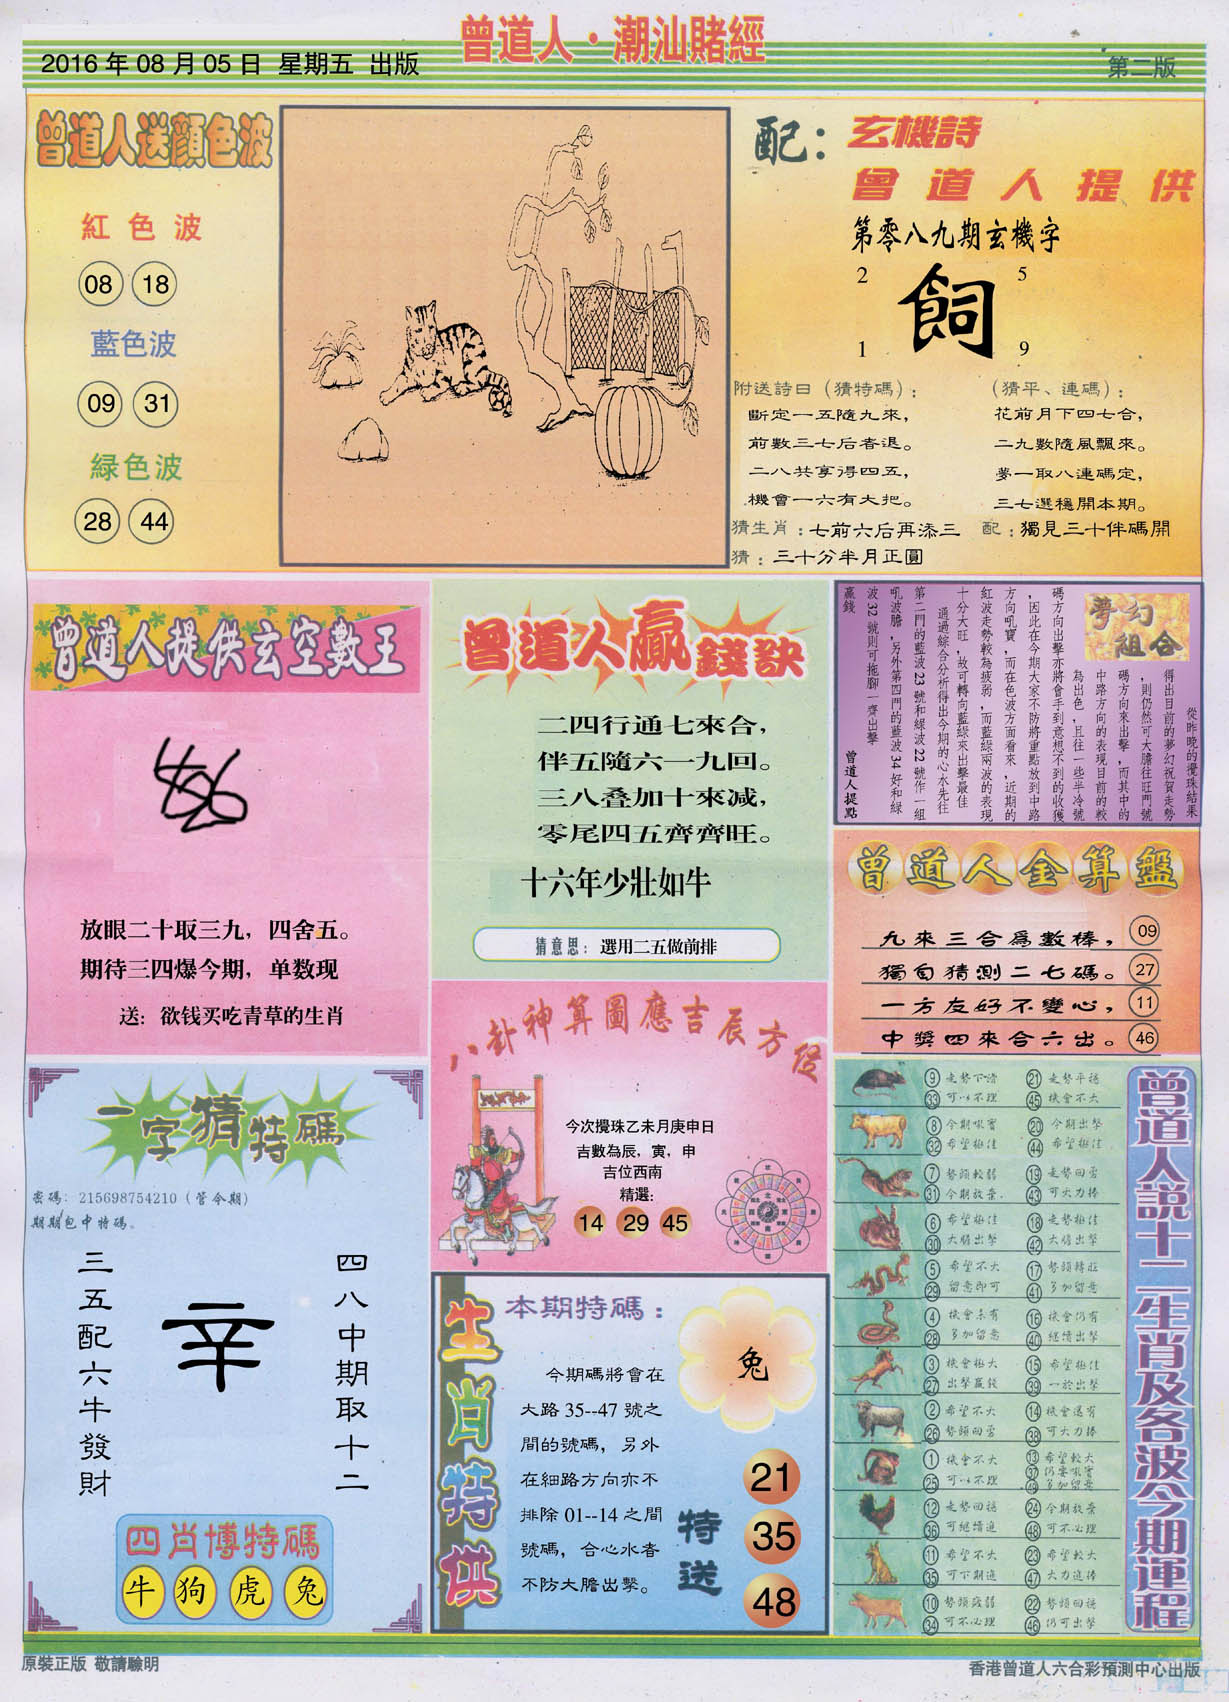 曾道人·潮汕賭經
2016 年 08 月 05 日 星期五 出版
第二版
曾道人送顔色波
紅色波
08 18
藍色波
09 31
緑色波
28 44
配：玄機詩
曾道人提供
第零八九期玄機字
2 5
飼
1 9
附送詩曰（猜特碼）：
斷定一五隨九來，
前數三七后者退。
二八共享得四五，
機會一六有大把。
（猜平、連碼）：
花前月下四七合，
二九數隨風飄來。
夢一取八連碼定，
三七選穩開本期。
猜生肖：七前六后再添三
配：獨見三十伴碼開
猜：三十分半月正圓
曾道人提供玄空數王
放眼二十取三九，四舍五。
期待三四爆今期，单数现
送：欲钱买吃青草的生肖
曾道人贏錢訣
二四行通七來合，
伴五隨六一九回。
三八叠加十來减，
零尾四五齊齊旺。
十六年少壯如牛
猜意思：選用二五做前排
夢幻組合
從昨晚的攪珠結果
得出目前的夢幻祝賀走勢
，則仍然可大膽往旺門號
碼方向來出擊，而其中的
中路方向的表現目前的較
為出色，且往一些半冷號
碼方向出擊亦將會手到意想不到的收獲
，因此在今期大家不防將重點放到中路
方向吼寶，而在色波方面看來，近期的
紅波走勢較為疲弱，而藍綠兩波的表現
十分大旺，故可轉向藍綠來出擊最佳
通過綜合分析得出今期的心水先往
第二門的藍波 23 號和綠波 22 號作一組
吼波膽，另外第四門的藍波 34 好和綠
波 32 號則可拖腳一齊出擊
贏錢
曾道人提點
曾道人金算盤
九來三合爲數棒， 09
獨自猜測二七碼。 27
一方友好不變心， 11
中獎四來合六出。 46
八卦神算圖應吉辰方位
今次攪珠乙未月庚申日
吉數為辰，寅，申
吉位西南
精選：
14 29 45
一字猜特碼
密碼：215698754210（管令期）
期期包中特碼。
四八中期取十二
辛
三五配六牛發財
四肖博特碼
牛 狗 虎 兔
生肖特供
本期特碼：
兔
今期碼將會在
大路 35--47 號之
間的號碼，另外
在細路方向亦不
排除 01--14 之間
號碼，合心水者
不防大膽出擊。
特送
21
35
48
曾道人説十二生肖及各波今期運程
9 走勢下滑 21 走勢平穩
33 可以不理 45 機會不大
8 今期吼實 20 今期出擊
32 希望極佳 44 希望極佳
7 勢頭較弱 19 走勢回勇
31 今期放棄 43 可大力捧
6 希望極佳 18 走勢極佳
30 大膽出擊 42 大膽出擊
5 希望不大 17 勢頭轉旺
29 留意即可 41 多加留意
4 機會未有 16 機會仍有
28 多加留意 40 繼續出擊
3 機會極大 15 希望極佳
27 出擊贏錢 39 一於出擊
2 希望不大 14 機會還有
26 勢頭回勇 38 可大力捧
1 機會不大 13 希望較大
25 可以不理 37 仍要吼實
49 多加留意
12 走勢回穩 24 今期放棄
36 可繼續追 48 可不必理
11 希望不大 23 希望較大
35 可下期追 47 大力追捧
10 勢頭疲弱 22 勢頭回穩
34 可不必理 46 仍可出擊
原裝正版 敬請驗明
香港曾道人六合彩預測中心出版